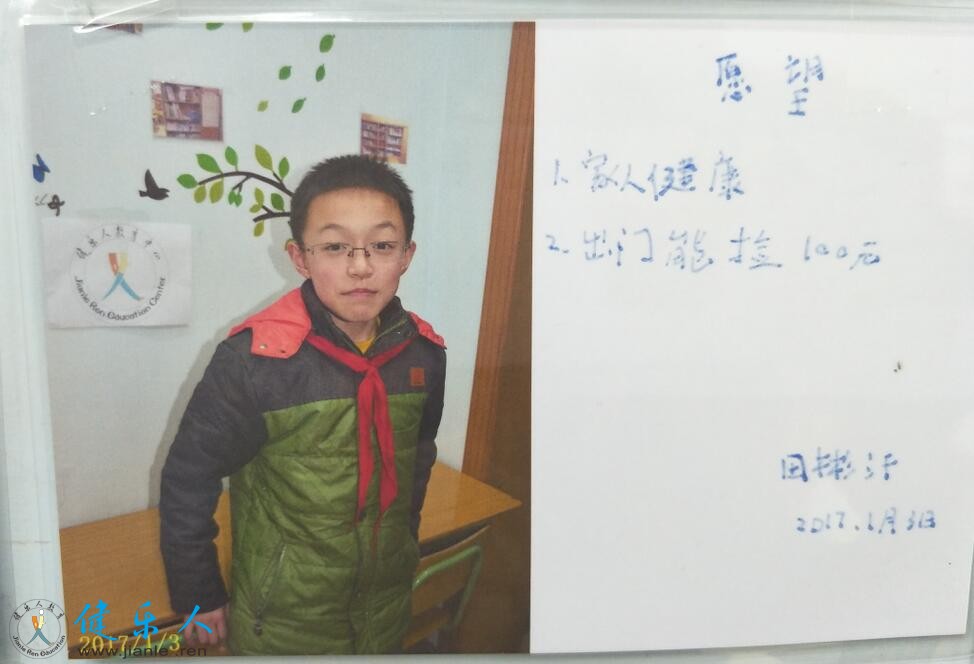 愿望
1. 家人健康
2. 出门能捡100元
田彬汗
2017.1月3日
健乐人教育中心
Jianle Ren Education Center
2017/1/3
健乐人
www.jianle.ren
健乐人教育
Jianle Ren Education